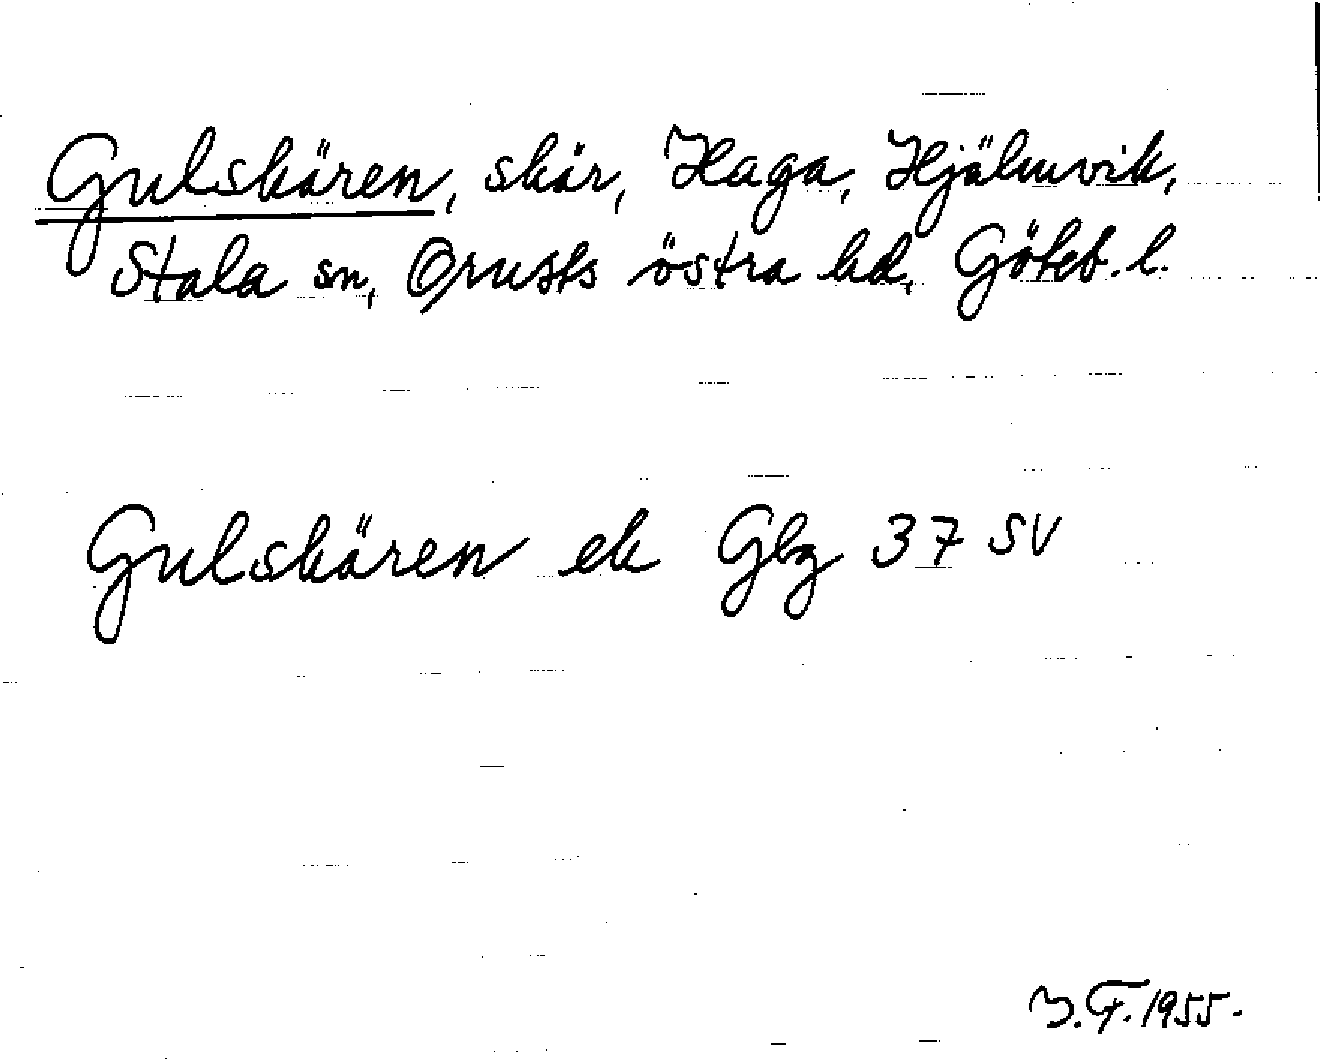 Gulskären, skär, Haga, Hjälmvik,
Stala sn, Orusts östra hd, Göteb. l.
Gulskären ek Gbg 37 SV
I.F. 1955.